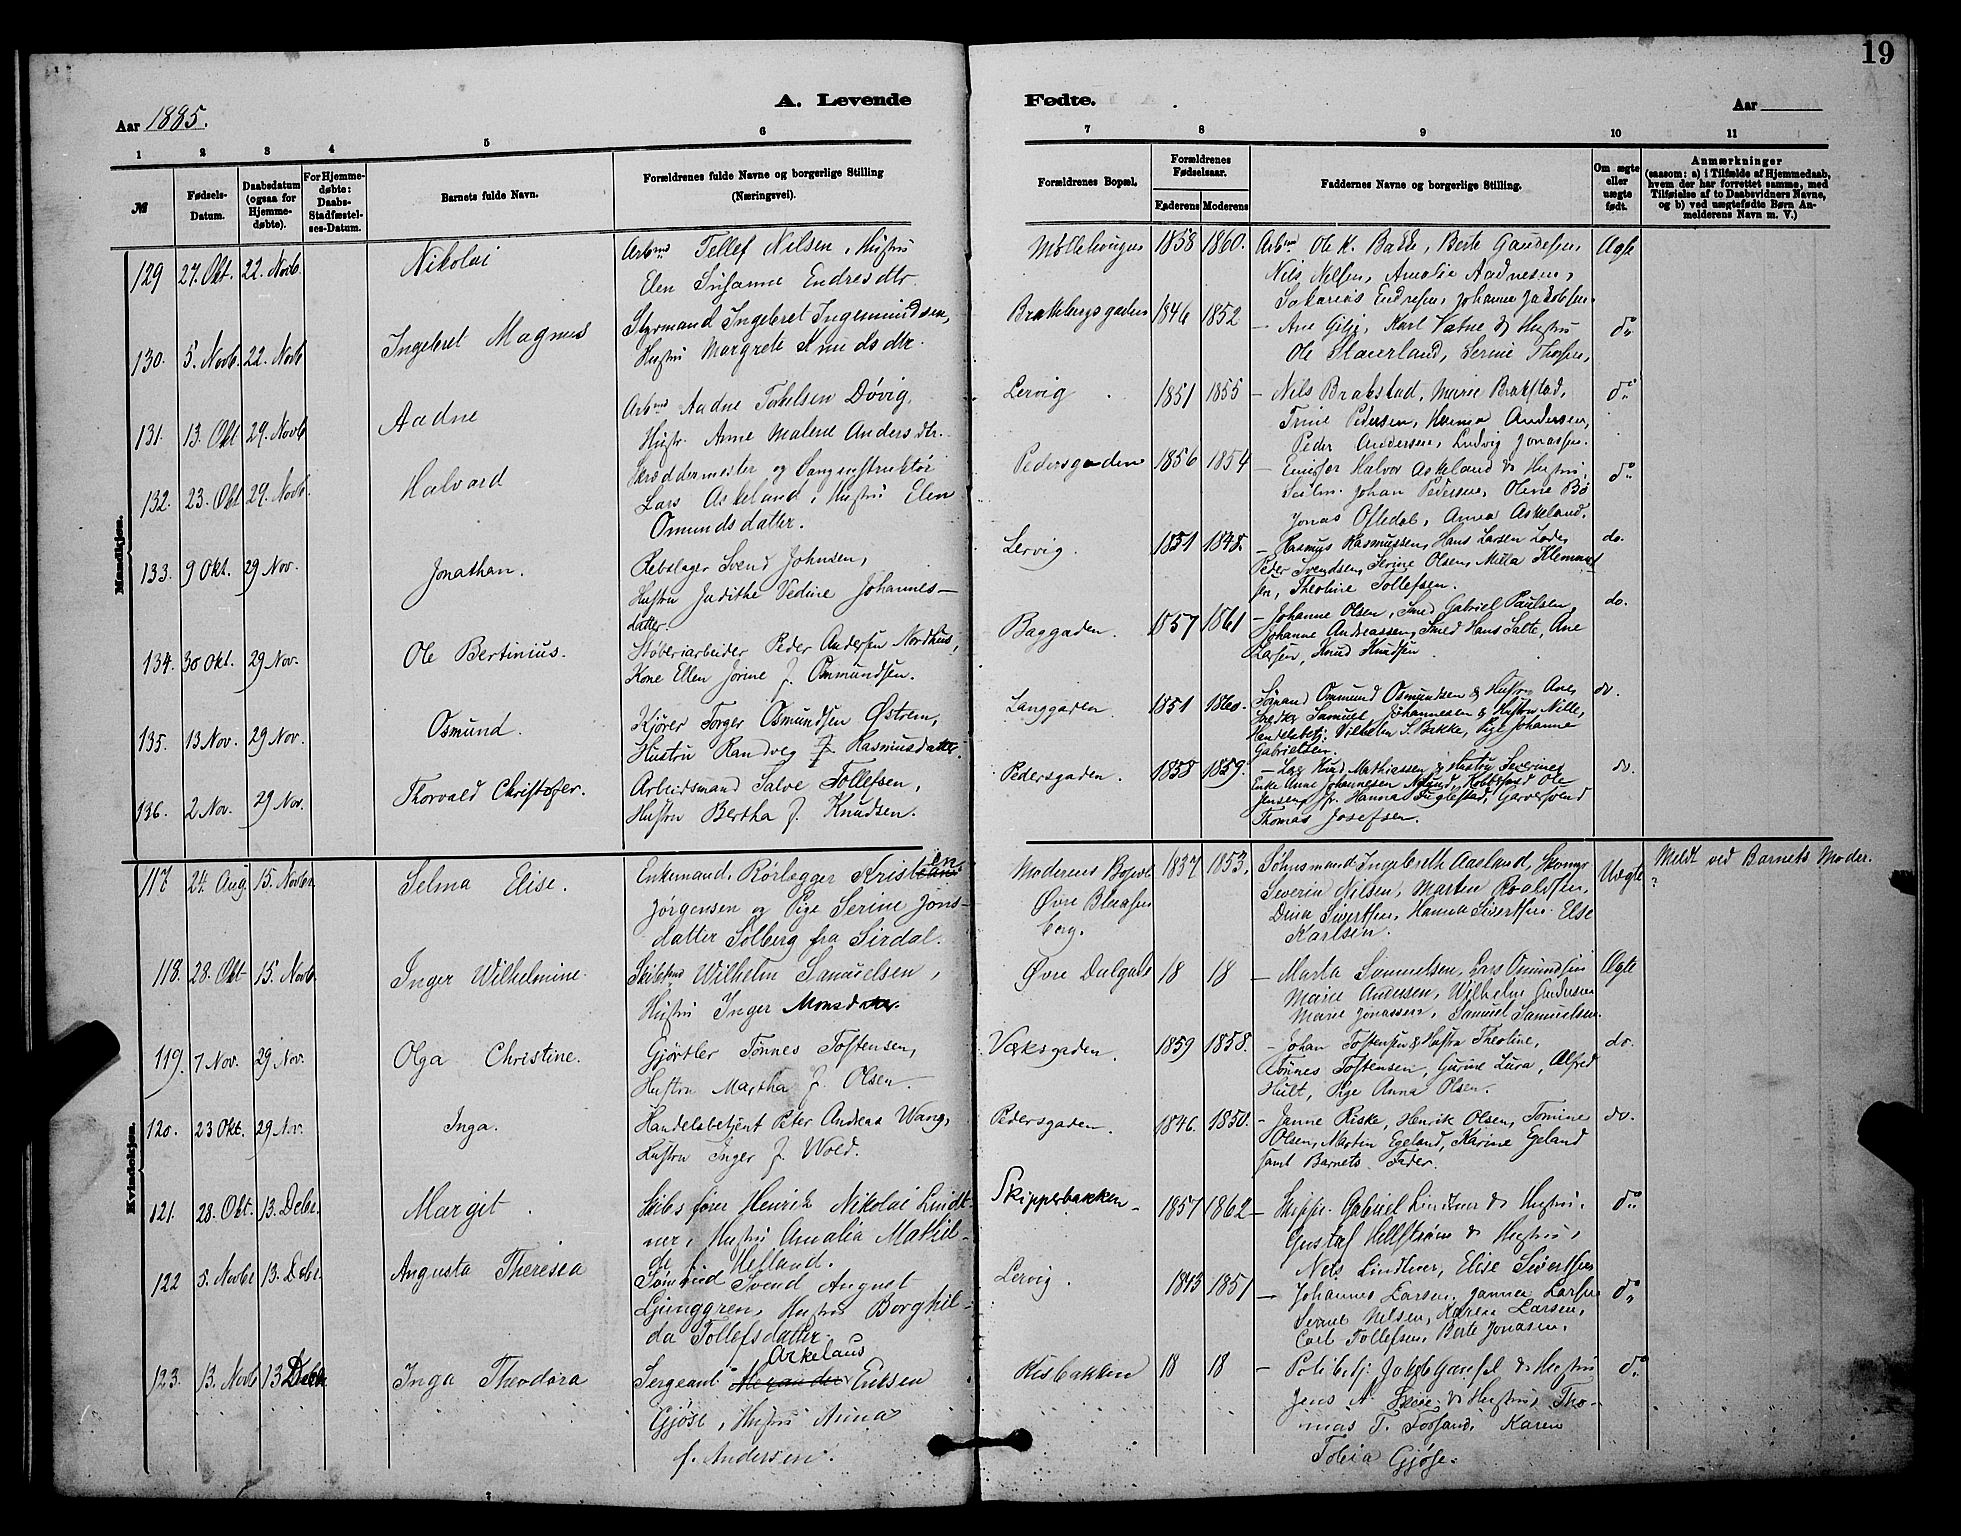 19
Aar 1885.
A. Levende
Fødte.
Aar
1 2 3 4 5 6
7 8 9 10 11
№
Fødsels-Datum.
Daabsdatum (ogsaa for Hjemmedøbte).
For Hjemmedøbte: Daabs-Stadfæstelses-Datum.
Barnets fulde Navn.
Forældrenes fulde Navne og borgerlige Stilling (Næringsvei).
Forældrenes Bopæl.
Forældrenes Fødselsaar.
Faderens Moderens
Faddernes Navne og borgerlige Stilling.
Om ægte eller uægte født.
Anmærkninger
(saasom: a) i Tilfælde af Hjemmedaab,
hvem der har forrettet samme, med
Tilføielse af to Daabsvidners Navne,
og b) ved uægtefødte Børn Anmelderens Navn m. V.)
Mandkjøn.
129 27. Okt. 22. Novb. Nikolai
Arbmd Tellef Nilsen, Hustru
Elen Susanne Endresdtr.
1858 1860. Arbmd Ole K. Bakke, Berte Gaudesen, Ægte
Nils Nelsen, Amalie Aadnesen,
Sakarias Endresen, Johanne Jakobsen.
130. 5. Novb. 22. Novb Ingebret Magnus
Styrmand Ingebret Ingemundsen,
Hustru Margrete Knudsdtr.
1846 1852 – Ane Gilje, Karl Vatne & Hustru do
Ole Stauerland, Serine Thorsen,
131. 13. Okt 29. Novb Aadne
Arbmd Aadne Torkelsen Døvig,
Hustr. Anne Malene Andersdtr.
Lervig 1851 1855 – Nils Brakstad, Marie Brakstad, do
Trine Pedersen, Andersen,
Peder Andersen, Ludvig Jonassen.
132. 23. Okt 29. Novb. Halvard
Skræddermester og Sanginstruktør
Lars Askeland, Hustru Elen
Omundsdatter.
Pedersgaden 1856 1854 – Halvor Askeland & Hustru do
Johan Pedersen, Olene Bø
Jonas Oftedal, Anna Askeland.
133. 9 Okt. 29 Nov. Jonathan.
Rebslager Svend Johnsen,
Hustru Judithe Vedine Johannes-
datter.
Lervig. 1851 1848. – Rasmus Rasmussen, Hans Larsen Lode, do.
Peder Svendsen, Serine Olsen, Milla Klemmet-
sen, Theoline Tollefsen.
134. 30 Okt. 29 Nov. Ole Bertinius.
Støberiarbeider Peder Andersen Nordhus,
Kone Ellen Jorine f. Ommundsen.
Baggaden. 1857 1861 – Johanne Olsen, Smed Gabriel Paulsen, do.
Johanne Andreassen, Smed Hans Salte, Ane
Larsen, Knud Knudsen
135. 13 Nov. 29 Nov. Osmund.
Kjører Torger Osmundsen Østrem,
Hustru Randveg f. Rasmusdatter.
Langgaden. 1851 1860. Sømand Ommund Osmundsen & Hustru Ane, do.
Samuel Johannesen & Hustru Nille,
Handelsbetj. Vilhelm S. Bakke, Pige Johanne
Gabrielsen.
136. 2 Nov. 29 Nov. Thorvald Christofer.
Arbeidsmand Salve Tollefsen,
Hustru Bertha f. Knudsen.
Pedersgaden. 1858 1859. – Knud Mathiassen & Hustru Severine, do.
Enke Anne Johannesen Ole
Jensen, Hanna Fuglestad, Garversvend
Thomas Josefsen.
Kvindekjøn.
117 24. Aug 15. Novbr Selma Elise.
Enkemand. Rørlægger Kristen
Jørgensen og Pige Serine Jons-
datter Solberg fra Sirdal.
Moderens Bopæl
Øvre Blaasen
berg.
1837 1853. Søhnsmand Ingebreth Aasland, Uægte
Severin Nilsen, Martin Roaldsen,
Dina Sivertsen, Hanna Sivertsen, Else
Karlsen.
Meldt ved Barnets Moder.
118. 28. Okt 15. Novb. Inger Wilhelmine.
Wilhelm Samuelsen,
Hustru Inger Monsdtr.
Øvre Dalgade 18 18 – Marta Samuelsen, Lars Osmundsen Ægte
Marie Andersen, Wilhelm Andersen
Marie Jonassen, Samuel Samuelsen.
119. 7 Nov. 29 Nov. Olga Christine.
Gjørtler Tønnes Toftensen,
Hustru Martha f. Olsen.
Væksgaden. 1859 1858. – Johan Toftensen & Hustru Theoline, do.
Tønnes Toftensen, Gurine Lura, Alfred
Hult, Pige Anna Olsen.
120. 23 Okt. 29 Nov. Inga.
Handelsbetjent Peter Andreas Wang,
Hustru Inger f. Wold.
Pedersgaden. 1846. 1850. – Janne Riske, Henrik Olsen, Tomine do.
Olsen, Martin Egeland, Karine Egeland
samt Barnets Fader.
121. 28. Okt. 13. Debr. Margit.
Skibsfører Henrik Nikolai Lindt-
ner, Hustru Amalia Mathil-
de f. Helland.
Skipperbakken 1857 1862 – Skippr. Gabriel Lindtner & Hustru, do
Gustaf Hellstrøm & Hustru,
Nels Lindtner, Elise Sivertsen
122 5. Novbr 13. Debr. Augusta Theresia
Sømand Svend August
Ljunggren, Hustru Borghil-
da Tollefsdatter.
Lervig. 1843 1851 – Johannes Larsen, Janna Larsen do
Nilsen, Karen Larsen,
Carl Tollefsen, Berte Jonasen.
123. 13. Novb 13 Debr Inga Theodora
Arkelaus
Sergeant Alexander Eriksen
Gjøse, Hustru Anna
f. Andersen.
Risbakken 18 18 – Politibetj. Jakob Gausel & Hustru do
Jens A. & Hustru, Tho-
mas T. Fossand, Karen
Tobia Gjøse.